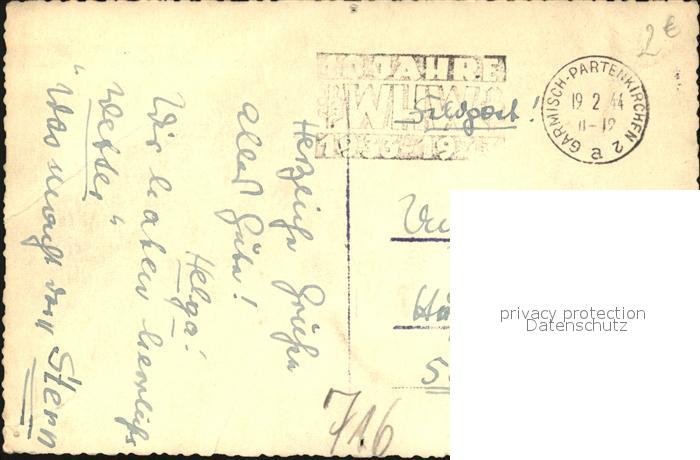 2€
10 JAHRE
WHW
1933-19
Feldpost!
GARMISCH-PARTENKIRCHEN 2
19 2 44
11-12
a
Herzliche Grüße
alles Gute!
Helga!
Wir haben herrlichs
Wetter"
"Was macht der Stern
716
privacy protection
Datenschutz